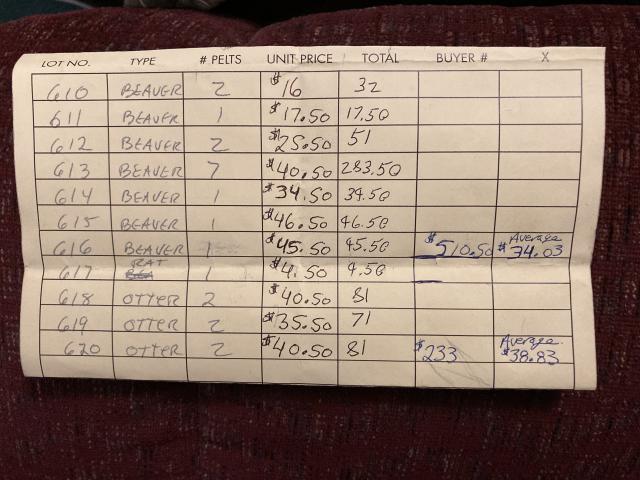 LOT NO. TYPE # PELTS UNIT PRICE TOTAL BUYER # X
610 BEAVER 2 $16 32
611 BEAVER 1 $17.50 17.50
612 BEAVER 2 $25.50 51
613 BEAVER 7 $40.50 283.50
614 BEAVER 1 $34.50 34.50
615 BEAVER 1 $46.50 46.50
616 BEAVER 1 $45.50 45.50 $510.50 Average $34.03
617 RAT 1 $4.50 4.50
618 OTTER 2 $40.50 81
619 OTTER 2 $35.50 71
620 OTTER 2 $40.50 81 $233 Average $38.83